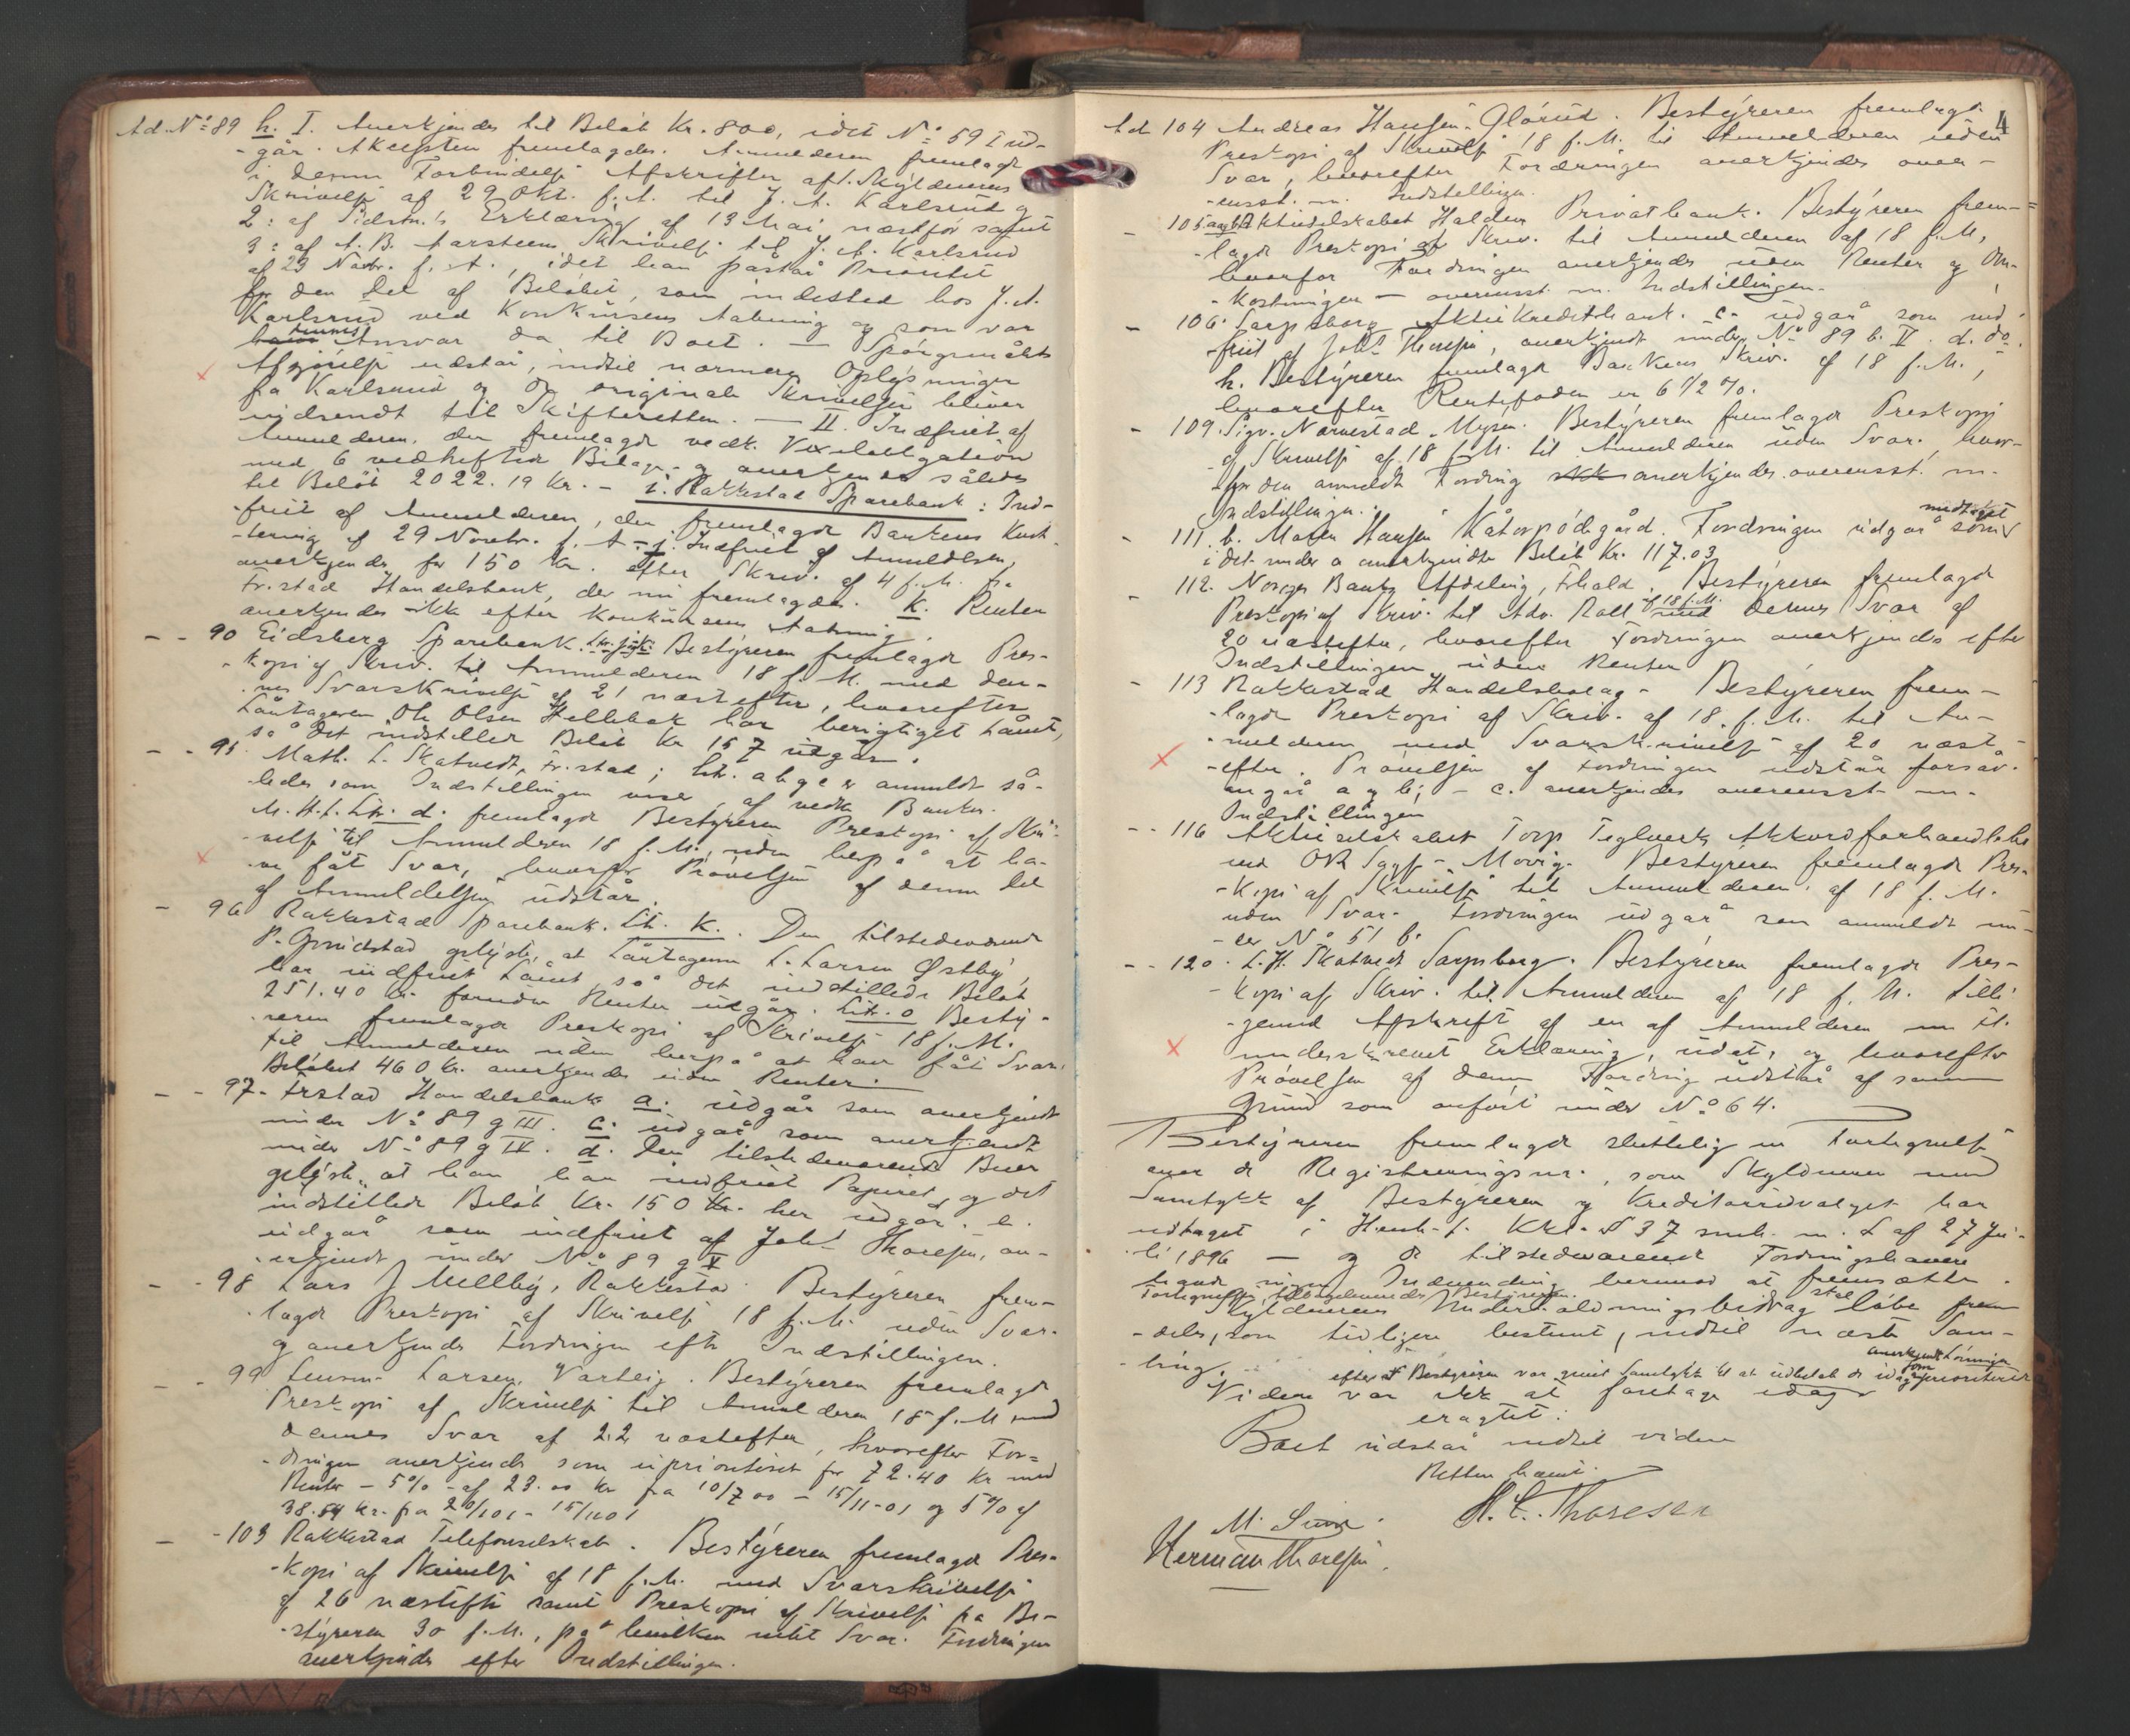 Ad. No 89 h. I. Anerkjendes til Beløb Kr. 800, idet No 59 I ud-
-går. Akcepten fremlagdes. Anmelderen fremlagde
i denne Forbindelse Afskrifter af 1. Skyldnerens
Skrivelse af 29 Okt. f. A. til J. A. Karlsrud og
2: af Sidstn.s Erklæring af 13 Mai næstfør samt
3: af A. B. Aarsteens Skrivelse til J. A. Karlsrud
af 23 Novbr. f. A., idet han påstår Prioritet
for den Del af Beløbet, som indestod hos J. A.
Karlsrud ved Konkursens Aabning og som var
hans Ansvar da til Boet. — Spørgsmålets
Afgjørelse udstår, indtil nærmere Oplysninger
fra Karlsrud og de originale Skrivelser bliver
indsendt til Skifteretten. — II. Indfriet af
Anmelderen, der fremlagde vedk. Vexelobligation
med 6 vedheftede Bilage og anerkjendes således
til Beløb 2022.19 Kr. — i. Rakkestad Sparebank: Ind-
-friet af Anmelderen, der fremlagde Bankens Kvit-
-tering af 29 Novbr. f. A. — j. Indfriet af Anmeldelsen,
anerkjendes for 150 Kr. efter Skriv. af 4 f. M. fra
Fr.stad Handelsbank, der nu fremlagdes. k. Renter
anerkjendes ikke efter Konkursens Aabning.
— - 90 Eidsberg Sparebank. Bestyreren fremlagde Pres-
-kopi af Skriv. til Anmelderen 18 f. M. med den-
-nes Svarskrivelse af 21 næstefter, hvorefter
Låntageren Ole Olsen Hellebæk har berigtiget Lånet,
så det indstillede Beløb Kr 157 udgår.
— - 95. Math. L. Skatvedt, Fr.stad; Litr. a b g e er anmeldt så-
-ledes som Indstillingen viser, af vedk. Banker.
M. H. t. Litr. d. fremlagde Bestyreren Preskopi af Skri-
-velse til Anmelderen 18 f. M., uden herpå at ha-
-ve fåt Svar, hvorfor Prøvelsen af denne Del
af Anmeldelsen udstår.
— 96 Rakkestad Sparebank. Lit. K. Den tilstedeværende
P. Grindstad oplyste, at Låntageren L. Larsen Østby,
har indfriet Lånet så det indstillede Beløb
251.40 Kr. foruden Renter udgår. Litr. o Besty-
-reren fremlagde Preskopi af Skrivelse 18 f. M.
til Anmelderen uden herpå at have fåt Svar,
Beløbet 460 Kr. anerkjendes uden Renter.
— - 97. Fr.stad Handelsbank a. udgår som anerkjendt
under No 89 g III. c. udgår som anerkjendt
under No 89 g IV. d. Den tilstedeværende Buer
oplyste, at han har indfriet Papiret, og det
indstillede Beløb Kr. 150 Kr. her udgår. e.
udgår som indfriet af Johs Thoresen, an-
-erkjendt under No 89 g V
— - 98 Lars J Mellby, Rakkestad. Bestyreren frem-
-lagde Preskopi af Skrivelse 18 f. M. uden Svar.
og anerkjendes Fordringen efter Indstillingen.
— - 99 Larsen, Varteig. Bestyreren fremlagde
Preskopi af Skrivelse til Anmelderen 18 f. M med
dennes Svar af 22 næstefter, hvorefter For-
-dringen anerkjendes som uprioriteret for 72.40 Kr med
Renter — 5% af 23.00 Kr fra 10/7 00 — 15/11-01 og 5% af
38.54 kr. fra 20/10 01 - 15/11 01
— - 103 Rakkestad Telefonselskab. Bestyreren fremlagde Pres-
-kopi af Skrivelse af 18 f. M. med Svarskrivelse
af 26 næstefter samt Preskopi af Skrivelse fra Be-
-styreren 30 f. M., på hvilken intet Svar. Fordringen
anerkjendes efter Indstillingen.
4
Ad 104 Andreas Hansen Glörud. Bestyreren fremlagde
Preskopi af Skrivelse 18 f. M. til Anmelderen uden
Svar, hvorefter Fordringen anerkjendes over-
-ensst. m. Indstillingen.
— 105 a og b Aktieselskabet Haldens Privatbank. Bestyreren frem-
-lagde Preskopi af Skriv. til Anmelderen af 18 f. M,
hvorfor Fordringen anerkjendes uden Renter og Om-
-kostninger — overensst. m. Indstillingen.
— 106. Sarpsborg Aktiekreditbank. c. udgår som ind-
-friet af Johs Thoresen, anerkjendt under No 89 b. II. d. do.
h. Bestyreren fremlagde Bankens Skriv. af 18 f. M.,
hvorefter Rentefoden er 6 1/2 %.
— 109. Sigv. Narvestad, Mysen. Bestyreren fremlagde Preskopi
af Skrivelse af 18 f. M. til Anmelderen uden Svar, hvor-
-for den anmeldte Fordring anerkjendes overensst. m.
Indstillingen.
— 111. b. Maren Hansen Kåtorpødegård. Fordringen udgår som medtaget
i det under a anerkjendte Beløb Kr. 117.03
— 112. Norges Banks Afdeling, Fr.hald. Bestyreren fremlagde
Preskopi af Skriv. til Adv. Roll af 18 f. M. med dennes Svar af
20 næstefter, hvorefter Fordringen anerkjendes efter
Indstillingen uden Renter
— 113 Rakkestad Handelsbolag. Bestyreren frem-
-lagde Preskopi af Skriv. af 18. f. M. til An-
-melderen med Svarskrivelse af 20 næst-
-efter. Prøvelsen af Fordringen udstår forsåv.
angår a og b; — c. anerkjendes overensst. m.
Indstillingen
— - 116 Aktieselskabet Torp Teglværk Akkordforhandlelse
ved Movig. Bestyreren fremlagde Pres-
-kopi af Skrivelse til Anmelderen, af 18 f. M.
uden Svar. Fordringen udgår som anmeldt un-
-der No 51 b.
— - 120. L. H. Skatvedt Sarpsborg. Bestyreren fremlagde Pres-
-kopi af Skriv. til Anmelderen af 18 f. M. tilli-
-gemed Afskrift af en af Anmelderen
underskrevet Erklæring, udat., og hvorefter
Prøvelsen af denne Fordring udstår af samme
Grund som anført under No 64.
Bestyreren fremlagde sluttelig en Fortegnelse
over de Registreringsnr., som Skyldneren med
Samtykke af Bestyreren og Kreditorudvalget har
udtaget i Henh. t. Kkl. § 37 smh. m. L af 27 Ju-
-li 1896 — og de tilstedeværende Fordringshavere
havde ingen Indvending hermod at fremsætte.
Fortegnelsen tilbageleveredes Bestyreren.
Skyldnerens Underholdningsbidrag skal løbe frem-
-deles, som tidligere bestemt, indtil næste Sam-
-ling.
efter at Bestyreren var givet Samtykke til at udbetale de idag som prioriterede anerkjendte Lønninger
Videre var ikke at foretage idag
eragtet:
Boet udstår indtil videre
Retten hævet.
M. Lund. H. C. Thoresen
Herman Thoresen.